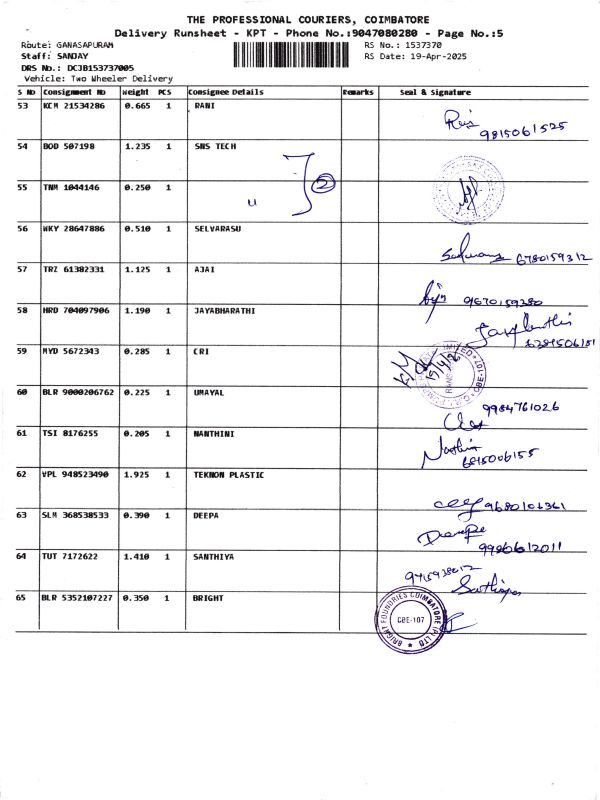 THE PROFESSIONAL COURIERS, COIMBATORE
Delivery Runsheet - KPT - Phone No.:9047080280 - Page No.:5
Route: GANASAPURAM RS No.: 1537370
Staff: SANJAY RS Date: 19-Apr-2025
DRS No.: DCJB153737005
Vehicle: Two Wheeler Delivery
S No Consignment No Weight PCS Consignee Details Remarks Seal & Signature
53 KCM 21534286 0.665 1 RANI
9815061525
54 BOD 507198 1.235 1 SNS TECH
2
55 TNM 1044146 0.250 1
56 WKY 28647886 0.510 1 SELVARASU
6780159312
57 TRZ 61382331 1.125 1 AJAI
9670159380
58 HRD 704097906 1.190 1 JAYABHARATHI
59 MYD 5672343 0.285 1 CRI
60 BLR 9000206762 0.225 1 UMAYAL
9984761026
61 TSI 8176255 0.205 1 NANTHINI
6815006155
62 VPL 948523490 1.925 1 TEKNON PLASTIC
9680106361
63 SLM 368538533 0.390 1 DEEPA
9986612011
64 TUT 7172622 1.410 1 SANTHIYA
9715938012
65 BLR 5352107227 0.350 1 BRIGHT
BRIGHT FOUNDRIES COIMBATORE (P) LTD
CBE-107